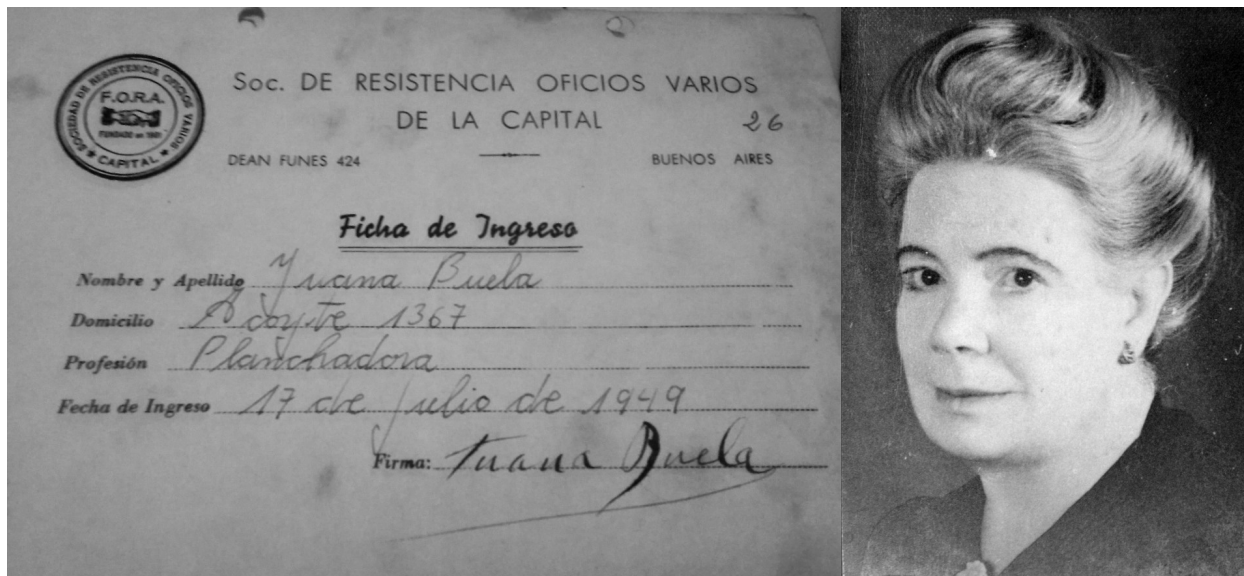 SOCIEDAD DE RESISTENCIA OFICIOS VARIOS
F.O.R.A.
FUNDADO en 1901
★ CAPITAL ★
Soc. DE RESISTENCIA OFICIOS VARIOS
DE LA CAPITAL 26
DEAN FUNES 424 BUENOS AIRES
Ficha de Ingreso
Nombre y Apellido Juana Buela
Domicilio Acoyte 1367
Profesión Planchadora
Fecha de Ingreso 17 de julio de 1949
Firma: Juana Buela